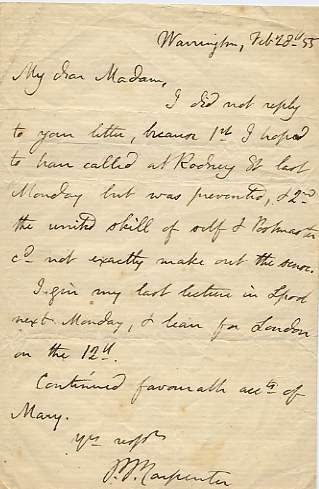 Warrington, Feb 28th 55
My dear Madam,
I did not reply
to your letter, because 1st I hoped
to have called at Rodney St last
Monday but was prevented, & 2nd
the united skill of self & Postmaster
cd not exactly make out the same.
I give my last lecture in Lpool
next Monday, & leave for London
on the 12th.
Continued favourable acct of
Mary.
Yrs
P.P. Carpenter